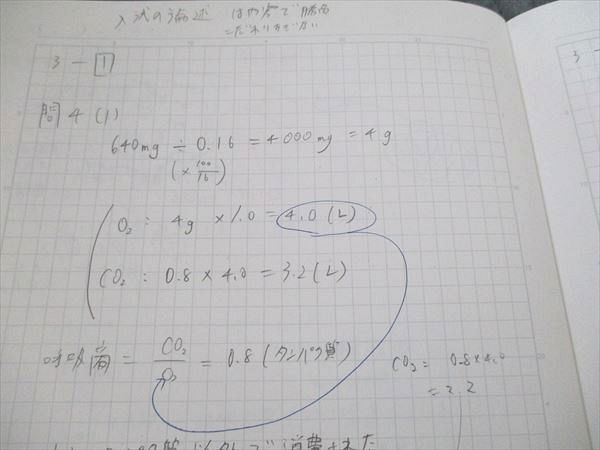 入試の論述 は内容で勝負
こだわりすぎない
3 - 1
3 -
問4(1)
640mg ÷ 0.16 = 4000mg = 4g
(× 100/16)
O₂ : 4g × 1.0 = 4.0 (L)
CO₂ : 0.8 × 4.0 = 3.2 (L)
呼吸商 = CO₂/O₂ = 0.8 (タンパク質)
CO₂ = 0.8×4.0
= 3.2
以外で消費された